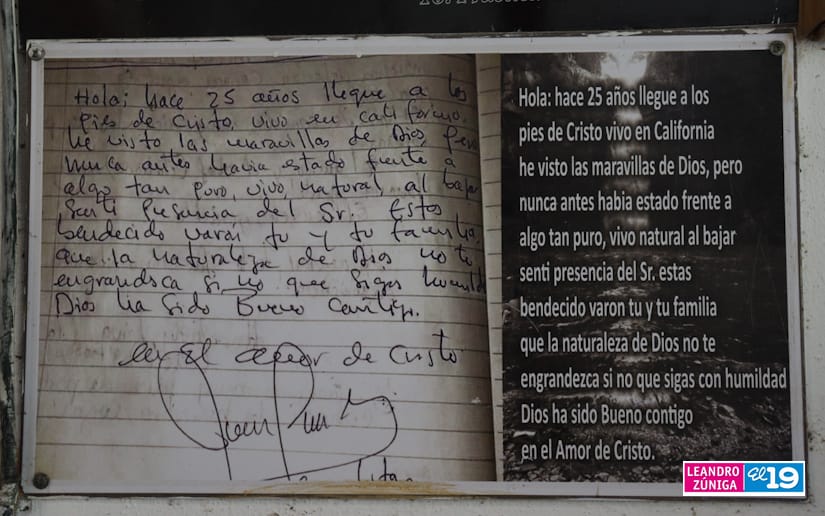 Hola; hace 25 años llegue a los
pies de Cristo, vivo en california
he visto las maravillas de Dios, pero
nunca antes havia estado frente a
algo tan puro, vivo, natural, al bajar
senti presencia del Sr. Estas
bendecido varón tu y tu familia,
que la naturaleza de Dios no te
engrandsca si no que sigas humilde
Dios ha sido Bueno contigo.
en El amor de Cristo
Hola: hace 25 años llegue a los
pies de Cristo vivo en California
he visto las maravillas de Dios, pero
nunca antes habia estado frente a
algo tan puro, vivo natural al bajar
senti presencia del Sr. estas
bendecido varon tu y tu familia
que la naturaleza de Dios no te
engrandezca si no que sigas con humildad
Dios ha sido Bueno contigo
en el Amor de Cristo.
LEANDRO
ZÚNIGA
El 19